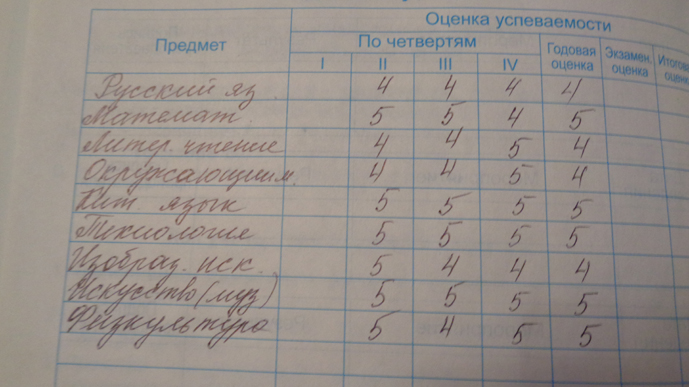 Оценка успеваемости
Предмет По четвертям Годовая оценка Экзамен. оценка Итогов. оцен
I II III IV
Русский яз. 4 4 4 4
Математ. 5 5 4 5
Литер. чтение 4 4 5 4
Окружающий м. 4 4 5 4
Кит язык 5 5 5 5
Технология 5 5 5 5
Изобраз. иск. 5 4 4 4
Искусство (муз) 5 5 5 5
Физкультура 5 4 5 5